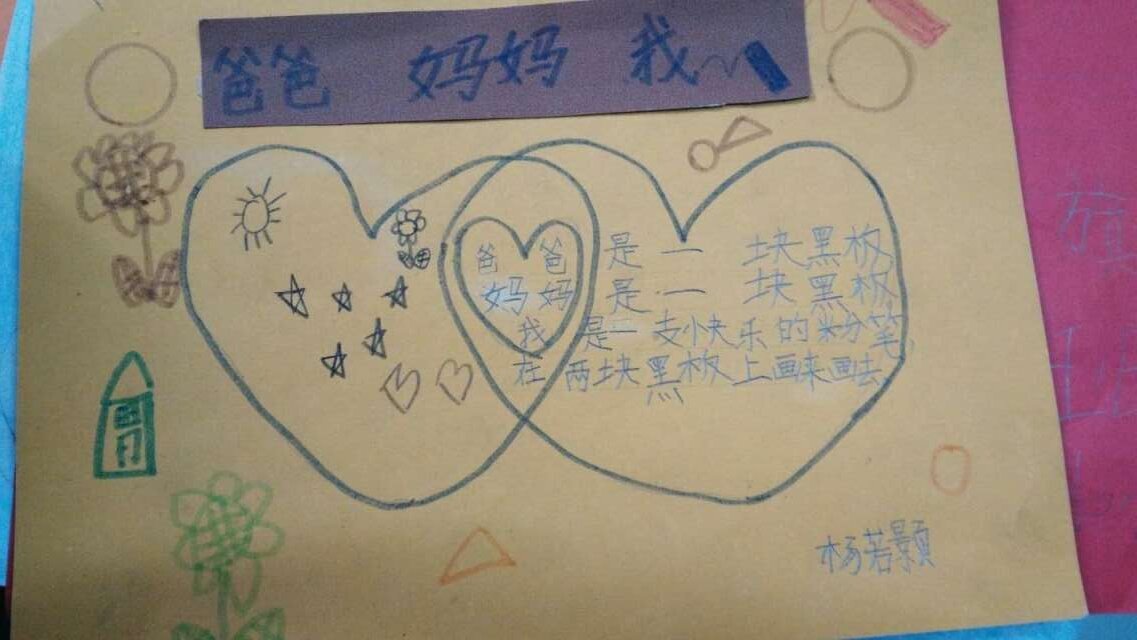 爸爸 妈妈 我
爸爸是一块黑板
妈妈是一块黑板
我是一支快乐的粉笔,
在两块黑板上画来画去
杨若颢
旗